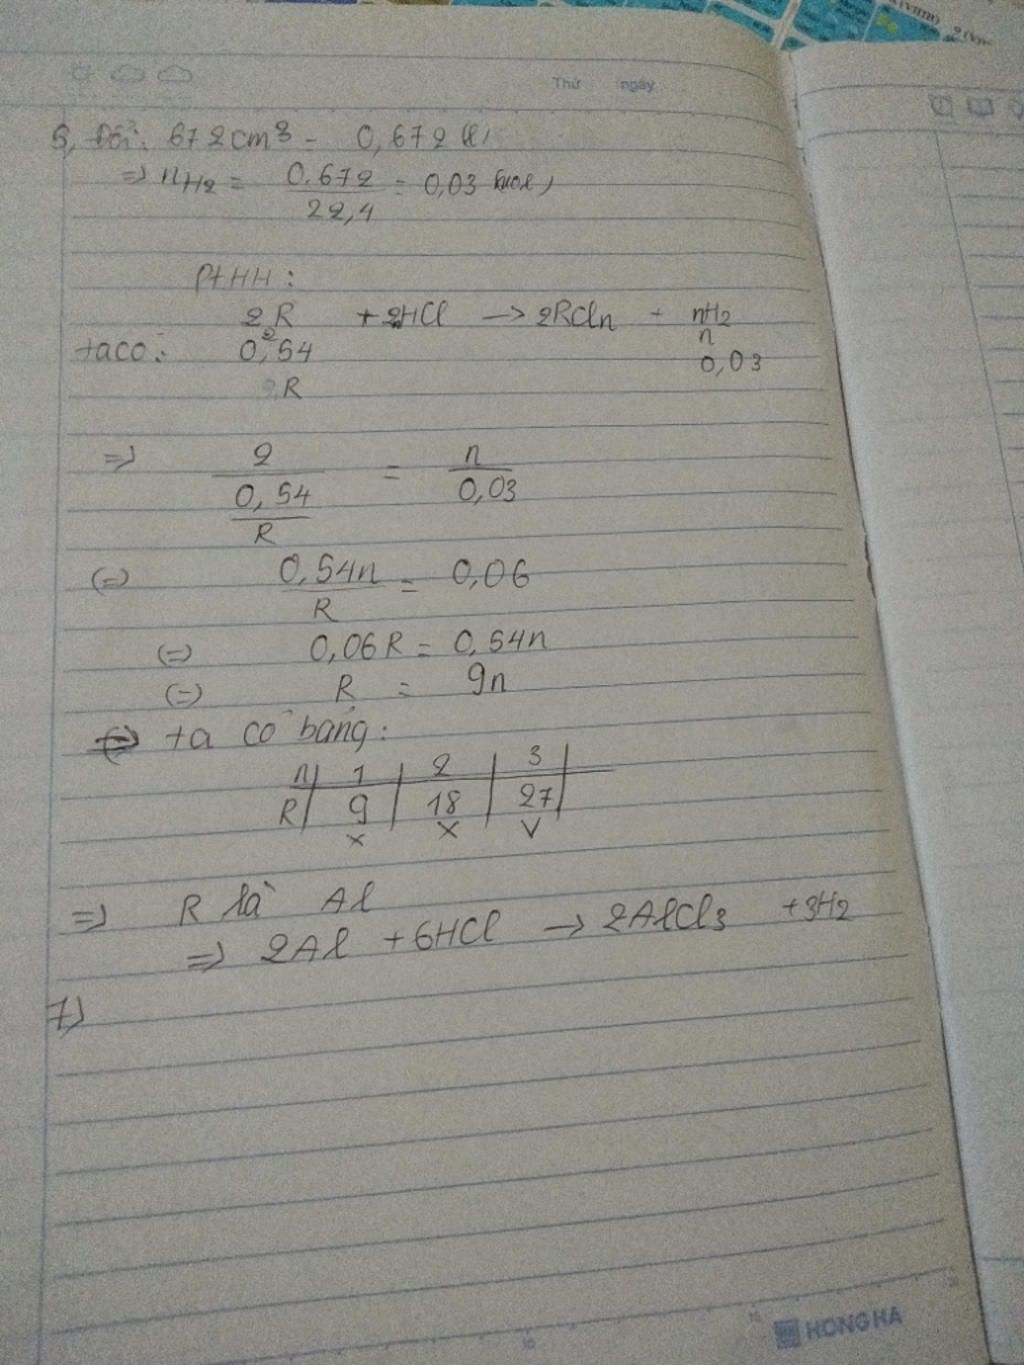 Thứ ngày
5, Đổi: 672cm3 = 0,672 (l)
=> nH2 = 0.672 / 22,4 = 0,03 (mol)
PtHH:
2R + 2HCl -> 2RCln + nH2
2 n
ta có: 0,54 0,03
R
=> 2 / (0,54 / R) = n / 0,03
(=) 0,54n / R = 0,06
(=) 0,06R = 0,54n
(=) R = 9n
ta có bảng:
n | 1 | 2 | 3 |
R | 9 | 18 | 27 |
x x v
=> R là Al
=> 2Al + 6HCl -> 2AlCl3 + 3H2
7)
HONG HA